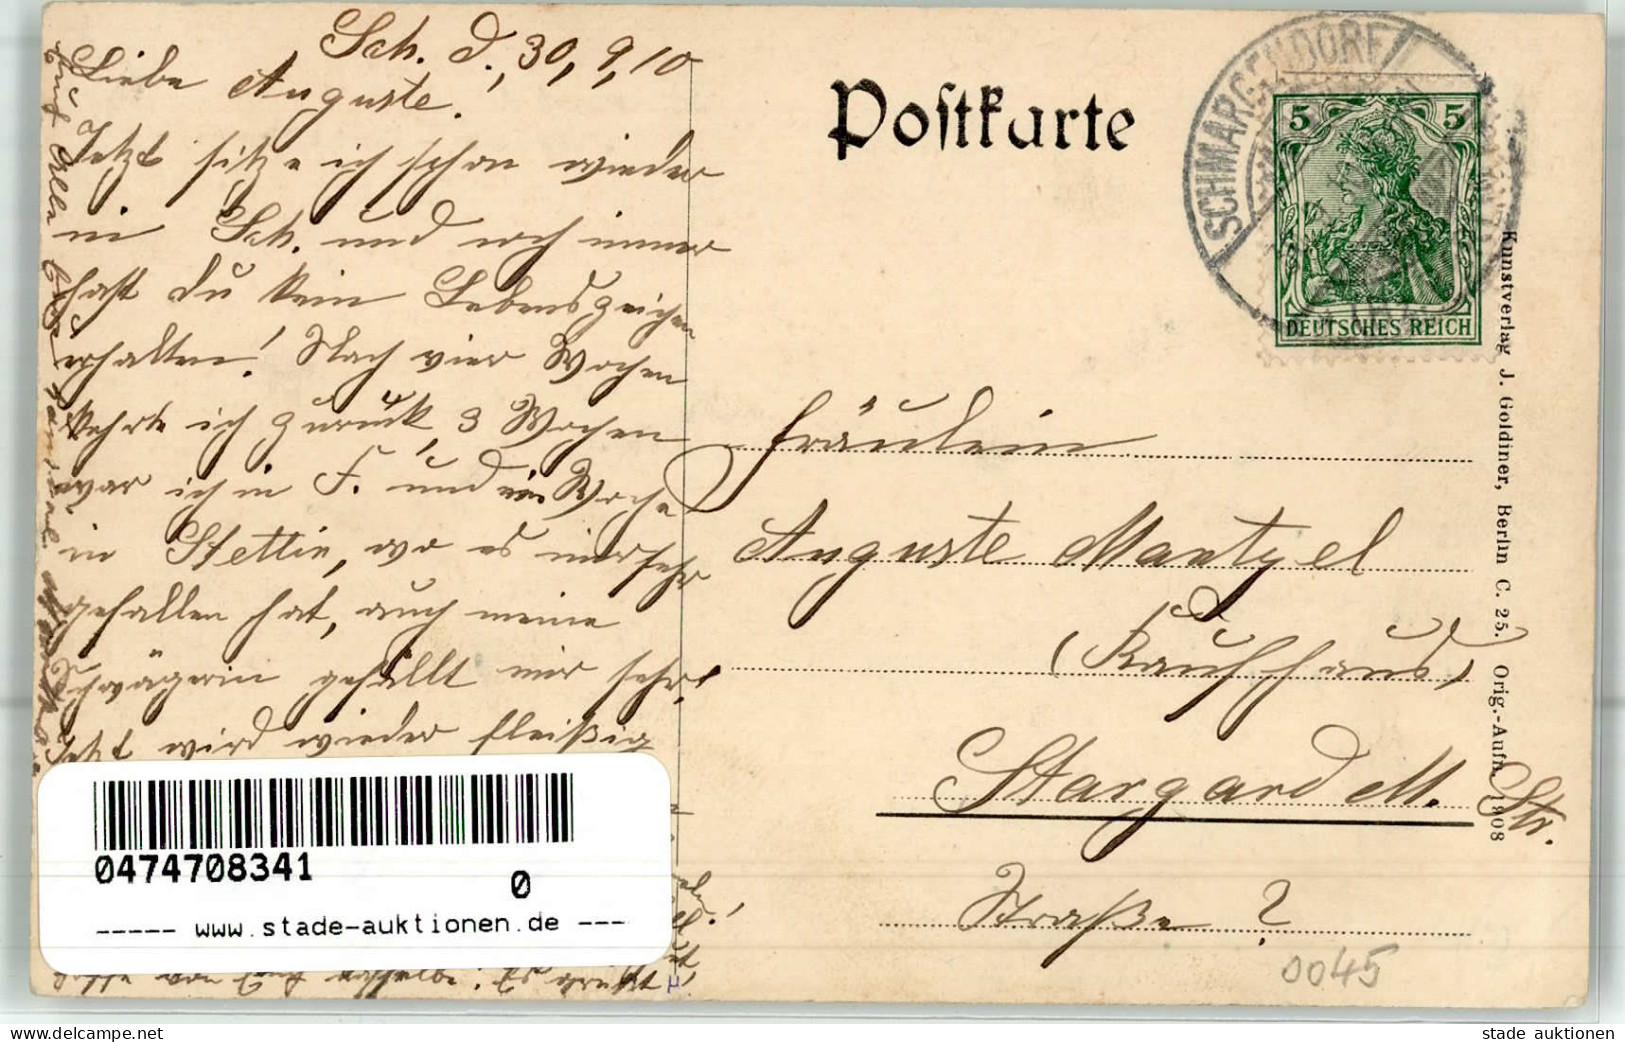 Sch. d., 30, 9, 10
Liebe Auguste.
Jetzt sitze ich schon wieder
in Sch. und noch immer
hast Du kein Lebenszeichen
erhalten! Nach vier Wochen
kehrte ich zurück, 3 Wochen
war ich in F. und eine Woche
in Stettin, wo es mir sehr
gefallen hat, auch meine
Schwägerin gefällt mir sehr.
Jetzt wird wieder fleißig
Postkarte
SCHMARGENDORF
5 5
DEUTSCHES REICH
Fräulein
Auguste Mantzel
(Kaufhaus)
Stargard M. Str.
Straße ?
0045
Kunstverlag J. Goldiner, Berlin C. 25. Orig.-Aufn. 1908
0474708341
0
----- www.stade-auktionen.de ---
stade auktionen
www.delcampe.net